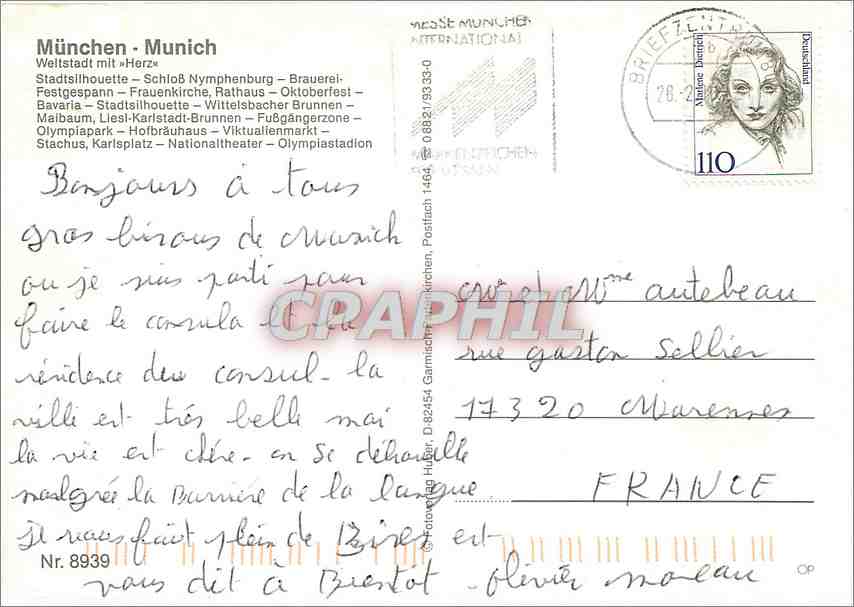 München · Munich
Weltstadt mit »Herz«
Stadtsilhouette – Schloß Nymphenburg – Brauerei-
Festgespann – Frauenkirche, Rathaus – Oktoberfest –
Bavaria – Stadtsilhouette – Wittelsbacher Brunnen –
Maibaum, Liesl-Karlstadt-Brunnen – Fußgängerzone –
Olympiapark – Hofbräuhaus – Viktualienmarkt –
Stachus, Karlsplatz – Nationaltheater – Olympiastadion
Bonjours à tous
gros bisous de Munich
ou je suis parti pour
faire le consula et la
résidence du consul - la
ville est très belle mai
la vie est chére - on se débrouille
malgrée la Barrière de la langue
je vous fait plein de Bises et
vous dit à Bientôt - olivier moreau
Nr. 8939
© Fotoverlag Huber, D-82454 Garmisch-Partenkirchen, Postfach 1464, ☎ 0 88 21/93 33-0
MESSE MÜNCHEN
INTERNATIONAL
BRIEFZENTRUM
Marlene Dietrich
Deutschland
110
Mr et Mme autebeau
rue gaston Sellier
17320 Marennes
FRANCE
OP
CPAPHIL